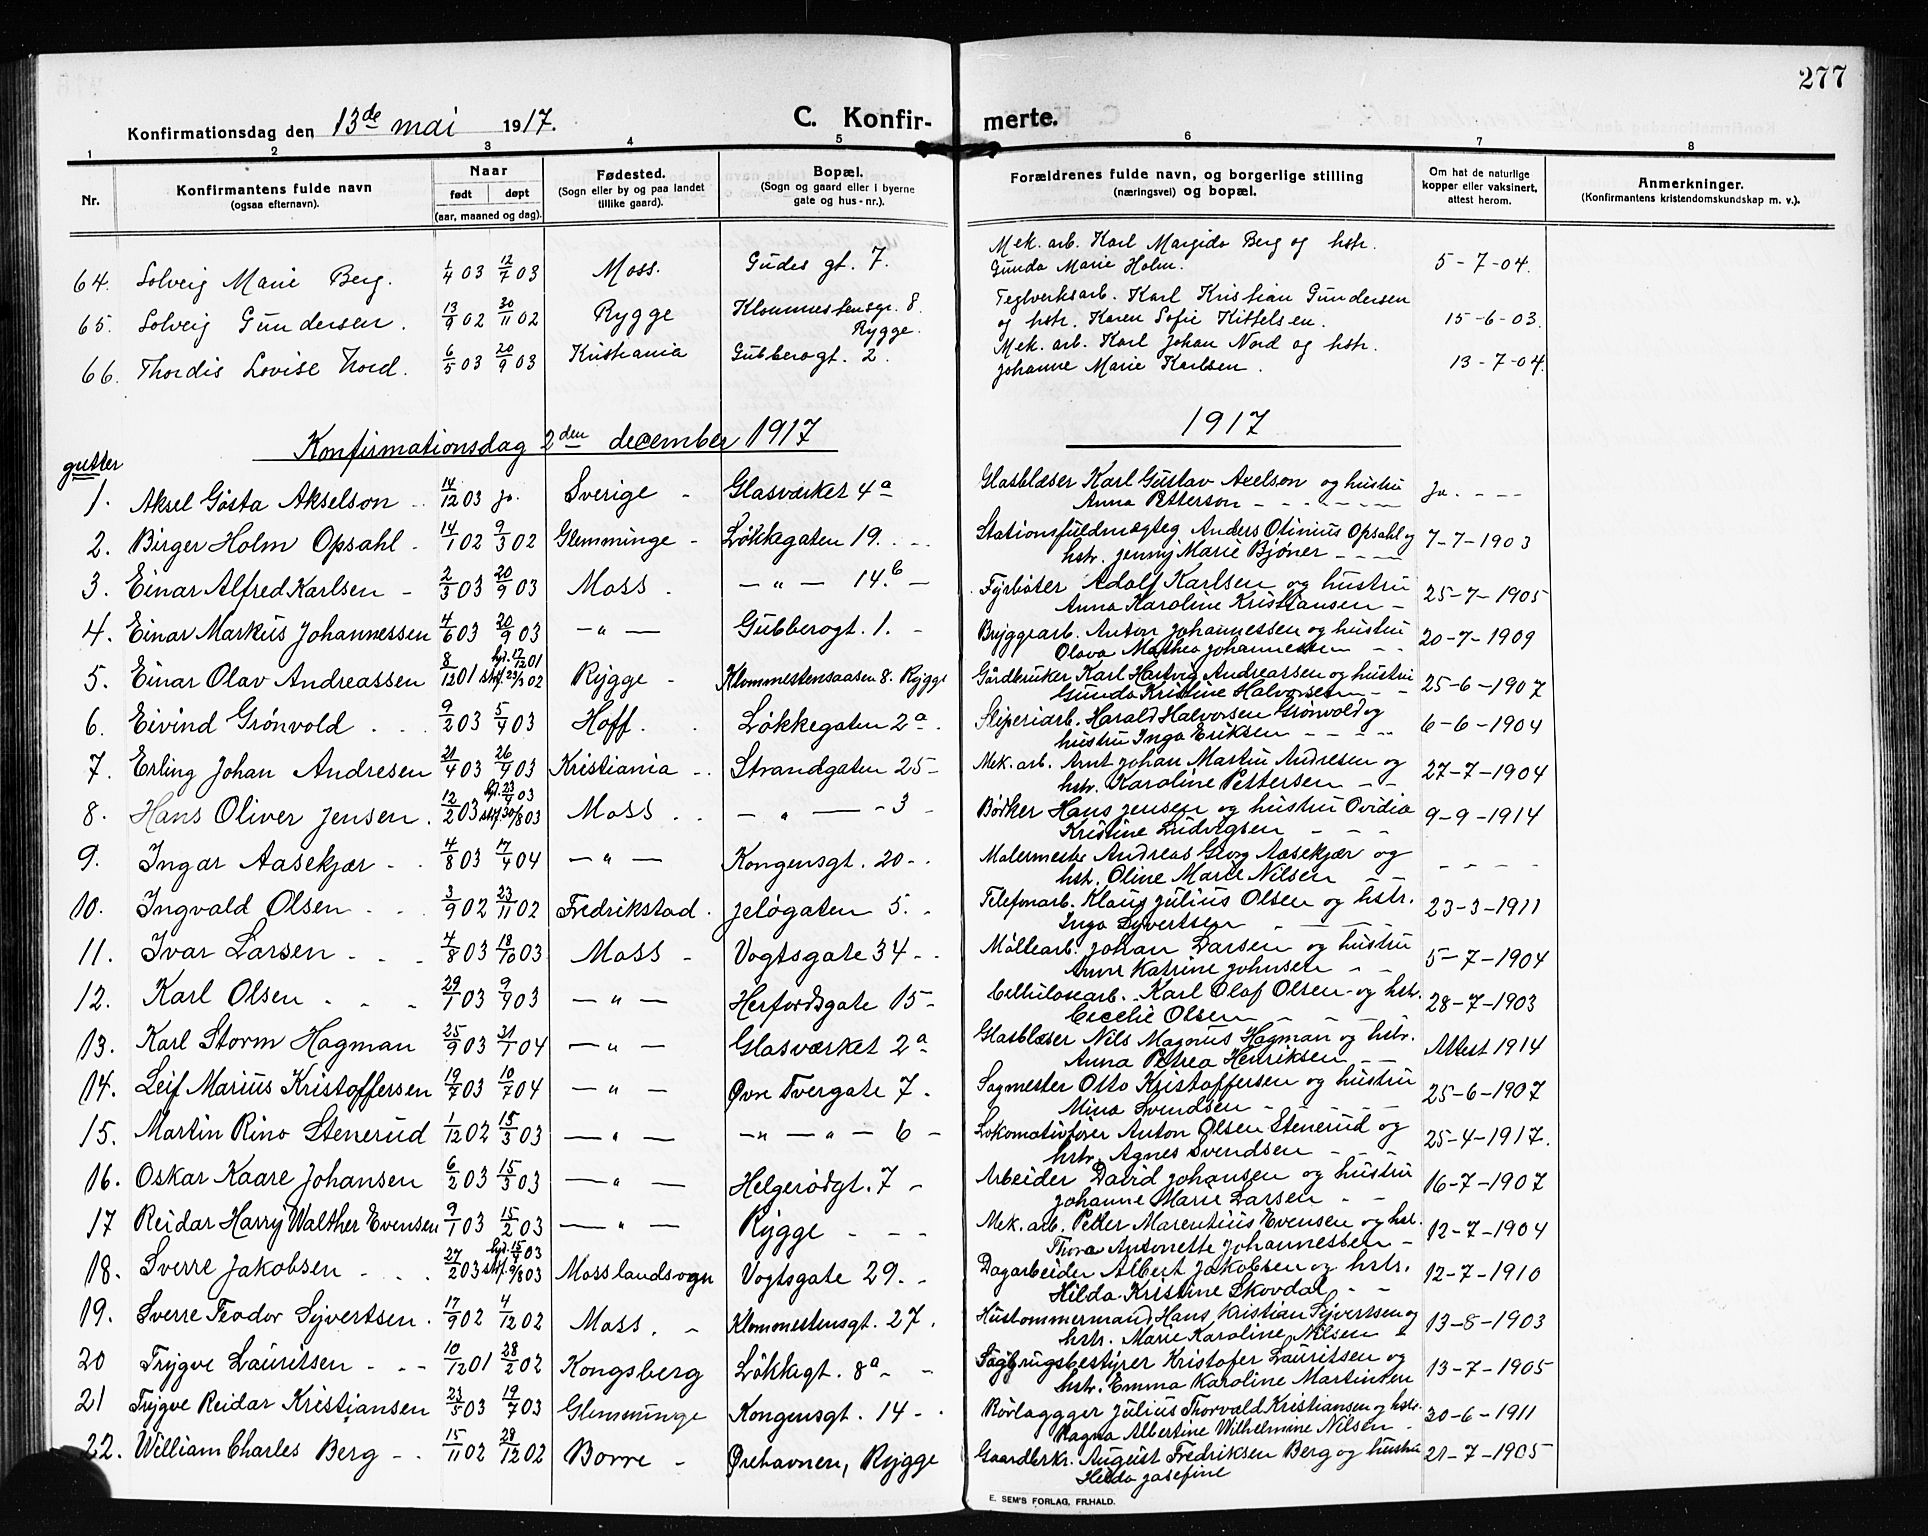 277
Konfirmationsdag den 13de mai 1917.
C. Konfirmerte.
1 2 3 4 5 6 7 8
Nr.
Konfirmantens fulde navn
(ogsaa efternavn).
Naar
født døpt
(aar, maaned og dag).
Fødested.
(Sogn eller by og paa landet
tillike gaard).
Bopæl.
(Sogn og gaard eller i byerne
gate og hus-nr.).
Forældrenes fulde navn, og borgerlige stilling
(næringsvei) og bopæl.
Om hat de naturlige
kopper eller vaksinert,
attest herom.
Anmerkninger.
(Konfirmantens kristendomskundskap m. v.).
64. Solveig Marie Berg. 1/4 03 12/7 03 Moss. Gudes gt. 7. Mek. arb. Karl Margido Berg og hstr.
Gunda Marie Holm. 5-7-04.
65. Solveig Gundersen. 13/9 02 30/11 02 Rygge Klommestensgr. 8. Teglverksarb. Karl Kristian Gundersen
Rygge. og hstr. Karen Sofie Kittelsen. 15-6-03.
66. Thordis Lovise Nord. 6/5 03 20/9 03 Kristiania Gubberogt. 2. Mek. arb. Karl Johan Nord og hstr.
Johanne Marie Karlsen. 13-7-04.
Konfirmationsdag 2den december 1917
1917
gutter
1. Aksel Gösta Akselson 14/12 03 ja. Sverige - Glasværket 4a Glasblæser Karl Gustav Axelson og hustru
Anna Petterson - - - - Ja. - - -
2. Birger Holm Opsahl 14/1 02 9/3 02 Glemminge - Løkkegaten 19. Stationsfuldmægtig Anders Otinius Opsahl og
hstr. Jenny Marie Bjøner - - - 7-7-1903
3. Einar Alfred Karlsen - 2/3 03 20/9 03 Moss. - " - 14.b - Fyrbøter Adolf Karlsen og hustru
Anna Karoline Kristiansen - 25-7-1905
4. Einar Markus Johannessen 4/6 03 20/9 03 - " - Gubberogt. 1. - Bryggearb. Anton Johannessen og hustru
Olava Mathea Johannessen - - 20-7-1909
5. Einar Olav Andreassen 8/12 01 hjd. 17/12 01
stf. 23/3 02 Rygge - Klommestensaasen 8. Rygge Gårdbruker Karl Hartvig Andreassen og hustru
Gunda Kristine Halvorsen - - 25-6-1907
6. Eivind Grønvold 9/2 03 5/4 03 Hoff. Løkkegaten 2a. Sliperiarb. Harald Halvorsen Grønvold og
hustru Inga Eriksen - - - 6-6-1904
7. Erling Johan Andresen 21/4 03 26/9 03 Kristiania - Strandgaten 25- Mek. arb. Arnt Johan Martin Andresen og
hstr. Karoline Pettersen - - 27-7-1904
8. Hans Oliver Jensen. 12/2 03 hjd. 23/4 03
stf. 30/8 03 Moss - " - 3 - Bødker Hans Jensen og hustru Ovidia
Kristine Ludvigsen - - - 9-9-1914
9. Ingar Aasekjær - 4/8 03 17/4 04 - " - Kongensgt. 20 - Malermester Andreas Georg Aasekjær og
hstr. Oline Marie Nilsen - - - - - -
10. Ingvald Olsen 3/9 02 23/11 02 Fredrikstad. Jeløgaten 5. - Telefonarb. Klaus Julius Olsen og hstr.
Inga Syvertsen - - - 23-3-1911
11. Ivar Larsen - - - 4/8 03 18/10 03 Moss - Vogtsgate 34 - Møllearb. Johan Larsen og hustru
Anne Katrine Johnsen - - 5-7-1904
12. Karl Olsen - - - 29/1 03 9/9 03 - " - Herfordsgate 15- Cellulosearb. Karl Olaf Olsen og hstr.
Cecelie Olsen - - - 28-7-1903
13. Karl Storm Hagman 25/9 03 31/1 04 - " - Glasværket 2a Glasblæser Nils Magnus Hagman og hstr.
Anna Petrea Henriksen - - Attest 1914
14. Leif Marius Kristoffersen 19/7 03 10/7 04 - " - Øvre Tvergate 7. Sagmester Otto Kristoffersen og hustru
Mina Svendsen - - - 25-6-1907
15. Martin Rino Stenerud 1/12 02 15/3 03 - " - - " - " - 6 - Lokomotivfører Anton Olsen Stenerud og
hstr. Agnes Svendsen - - - 25-4-1917.
16. Oskar Kaare Johansen 6/2 03 15/3 03 - " - Helgerødgt. 7 - Arbeider David Johansen og hustru
Johanne Marie Larsen - - 16-7-1907
17 Reidar Harry Walther Evensen 9/1 03 15/2 03 - " - Rygge - - - Mek. arb. Petter Marentius Evensen og hstr.
Thora Antonette Johannessen - 12-7-1904
18. Sverre Jakobsen - 27/2 03 hjd. 15/4 03
stf. 9/8 03 Moss landsogn Vogtsgate 29. - Dagarbeider Albert Jakobsen og hstr.
Hilda Kristine Skovdal - - 12-7-1910
19. Sverre Teodor Syvertsen. 17/9 02 4/12 02 Moss. - Klommestensgt. 27. Hustømmermand Hans Kristian Syvertsen og
hstr. Marie Karoline Nilsen - 13-8-1903
20 Trygve Lauritsen - - 10/12 01 28/2 02 Kongsberg Løkkegt. 8a - Sagbrugsbestyrer Kristofer Lauritsen og
hstr. Emma Karoline Martinsen 13-7-1905
21 Trygve Reidar Kristiansen 23/5 03 19/7 03 Glemminge Kongensgt. 14 - Rørlaggger Julius Thorvald Kristiansen og hstr.
Magna Albertine Wilhelmine Nilsen - 30-6-1911
22. William Charles Berg - 15/11 02 28/12 02 Borre - Ørehavnen, Rygge Gaardbrkr. August Fredriksen Berg og hustru
Hilda Josefine 21-7-1905
E. SEM'S FORLAG, FR.HALD.